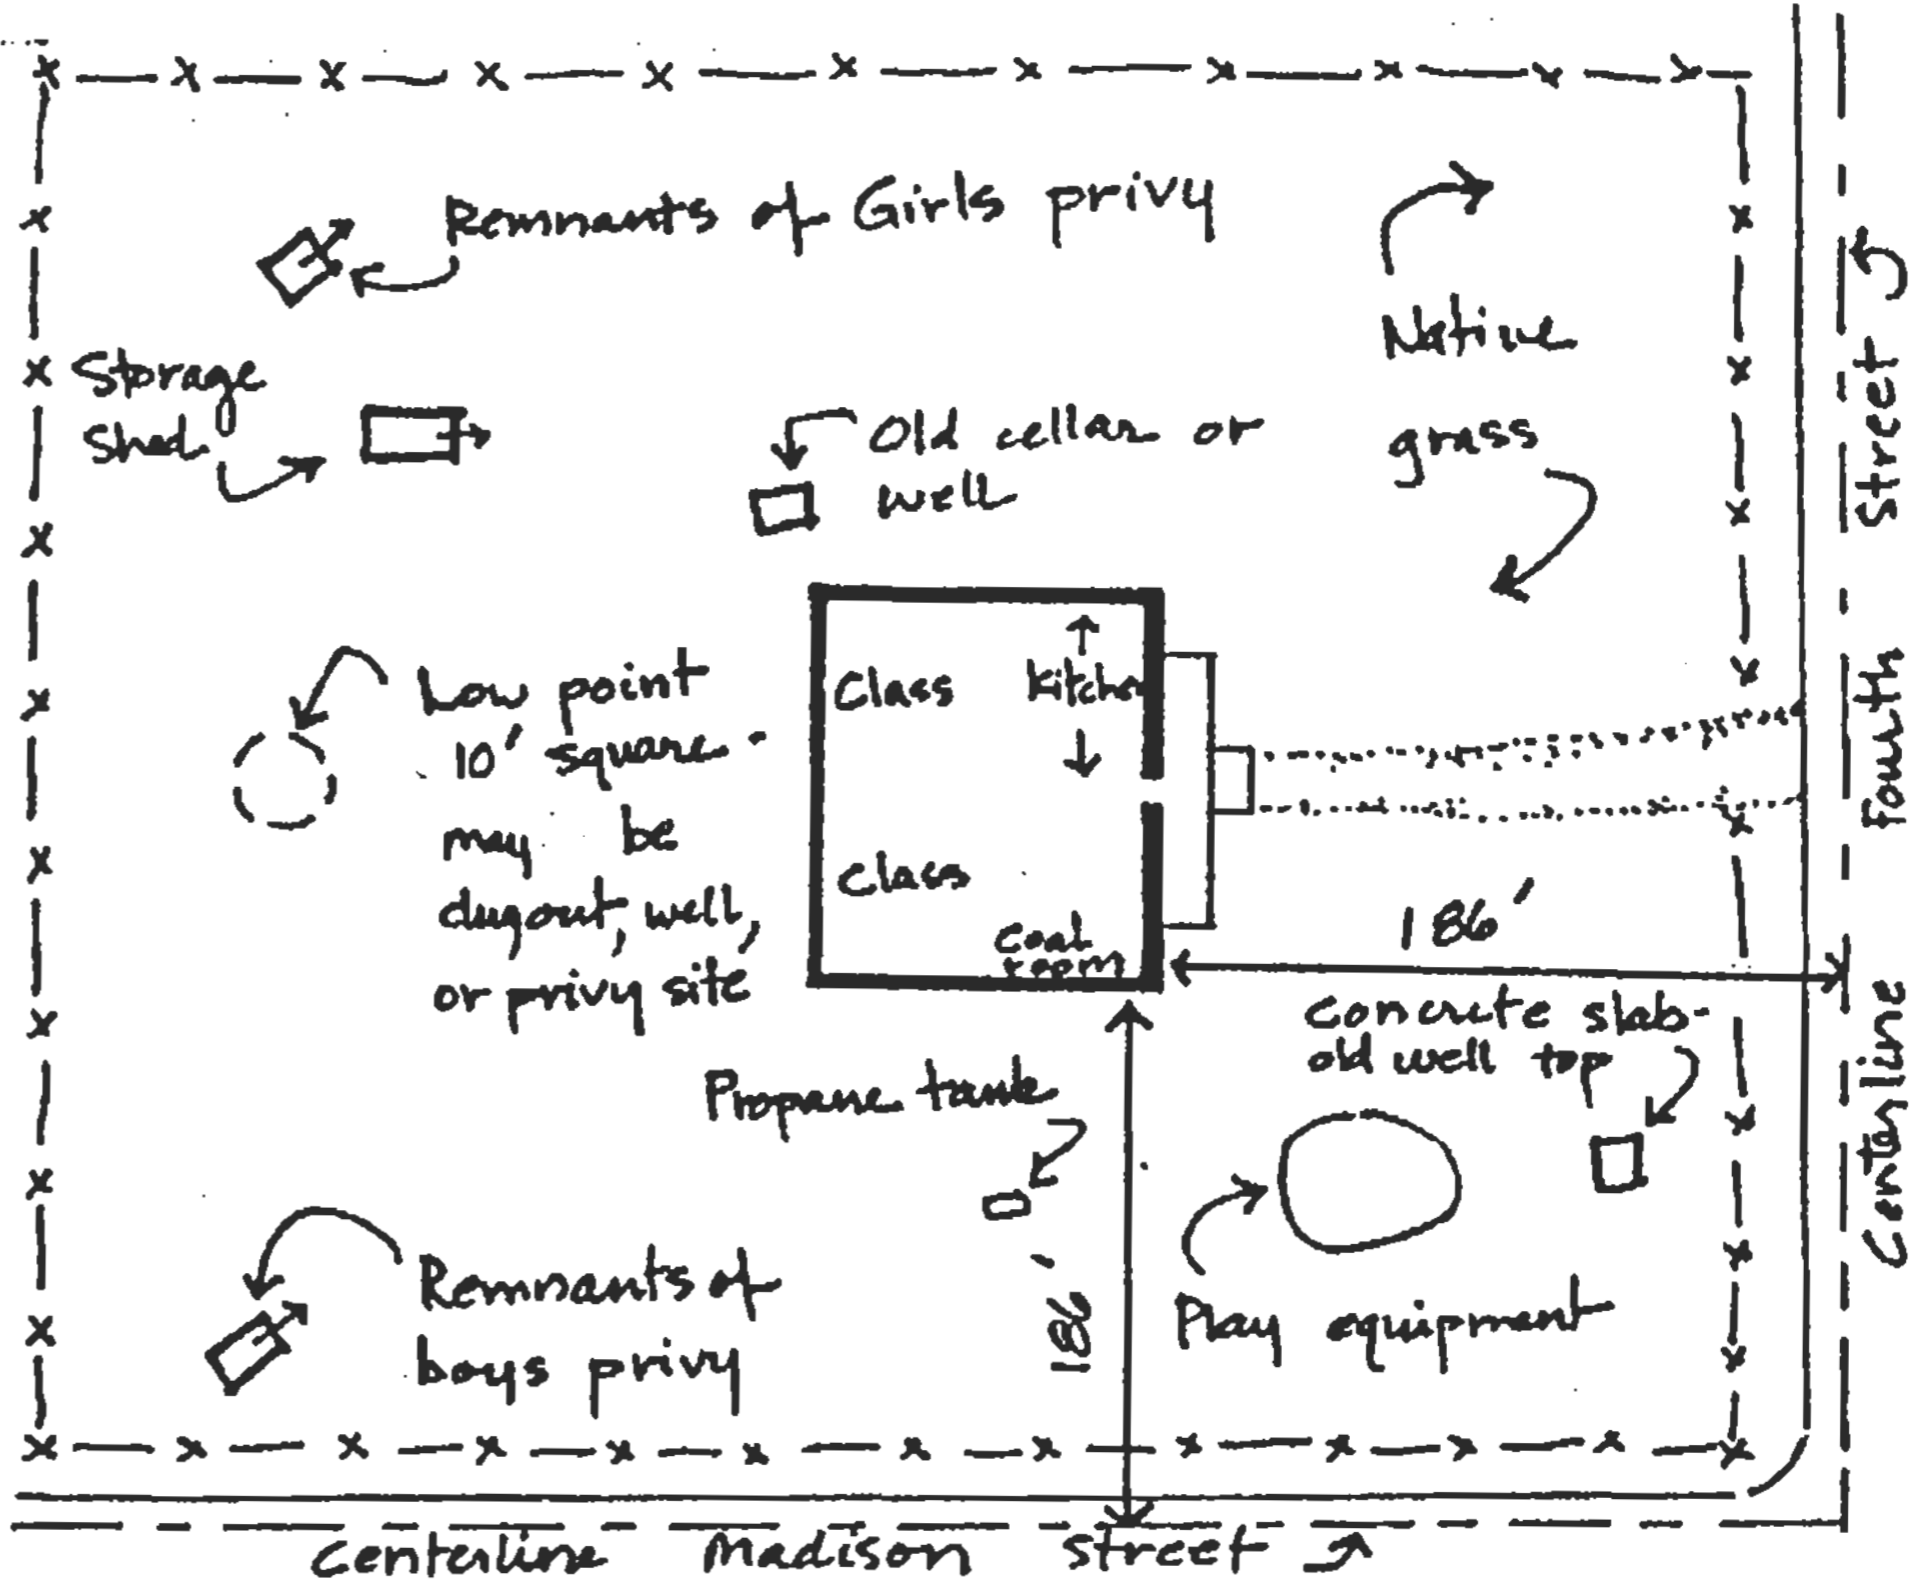 Remnants of Girls privy
Native
grass
Storage
Shed
Old cellar or
well
Low point
10' square -
may be
dugout, well,
or privy site
Class
Kitchen
Class
Coal
room
186'
Concrete slab-
old well top
Propane tank
186'
Play equipment
Remnants of
boys privy
Centerline Madison Street
Centerline Fourth Street